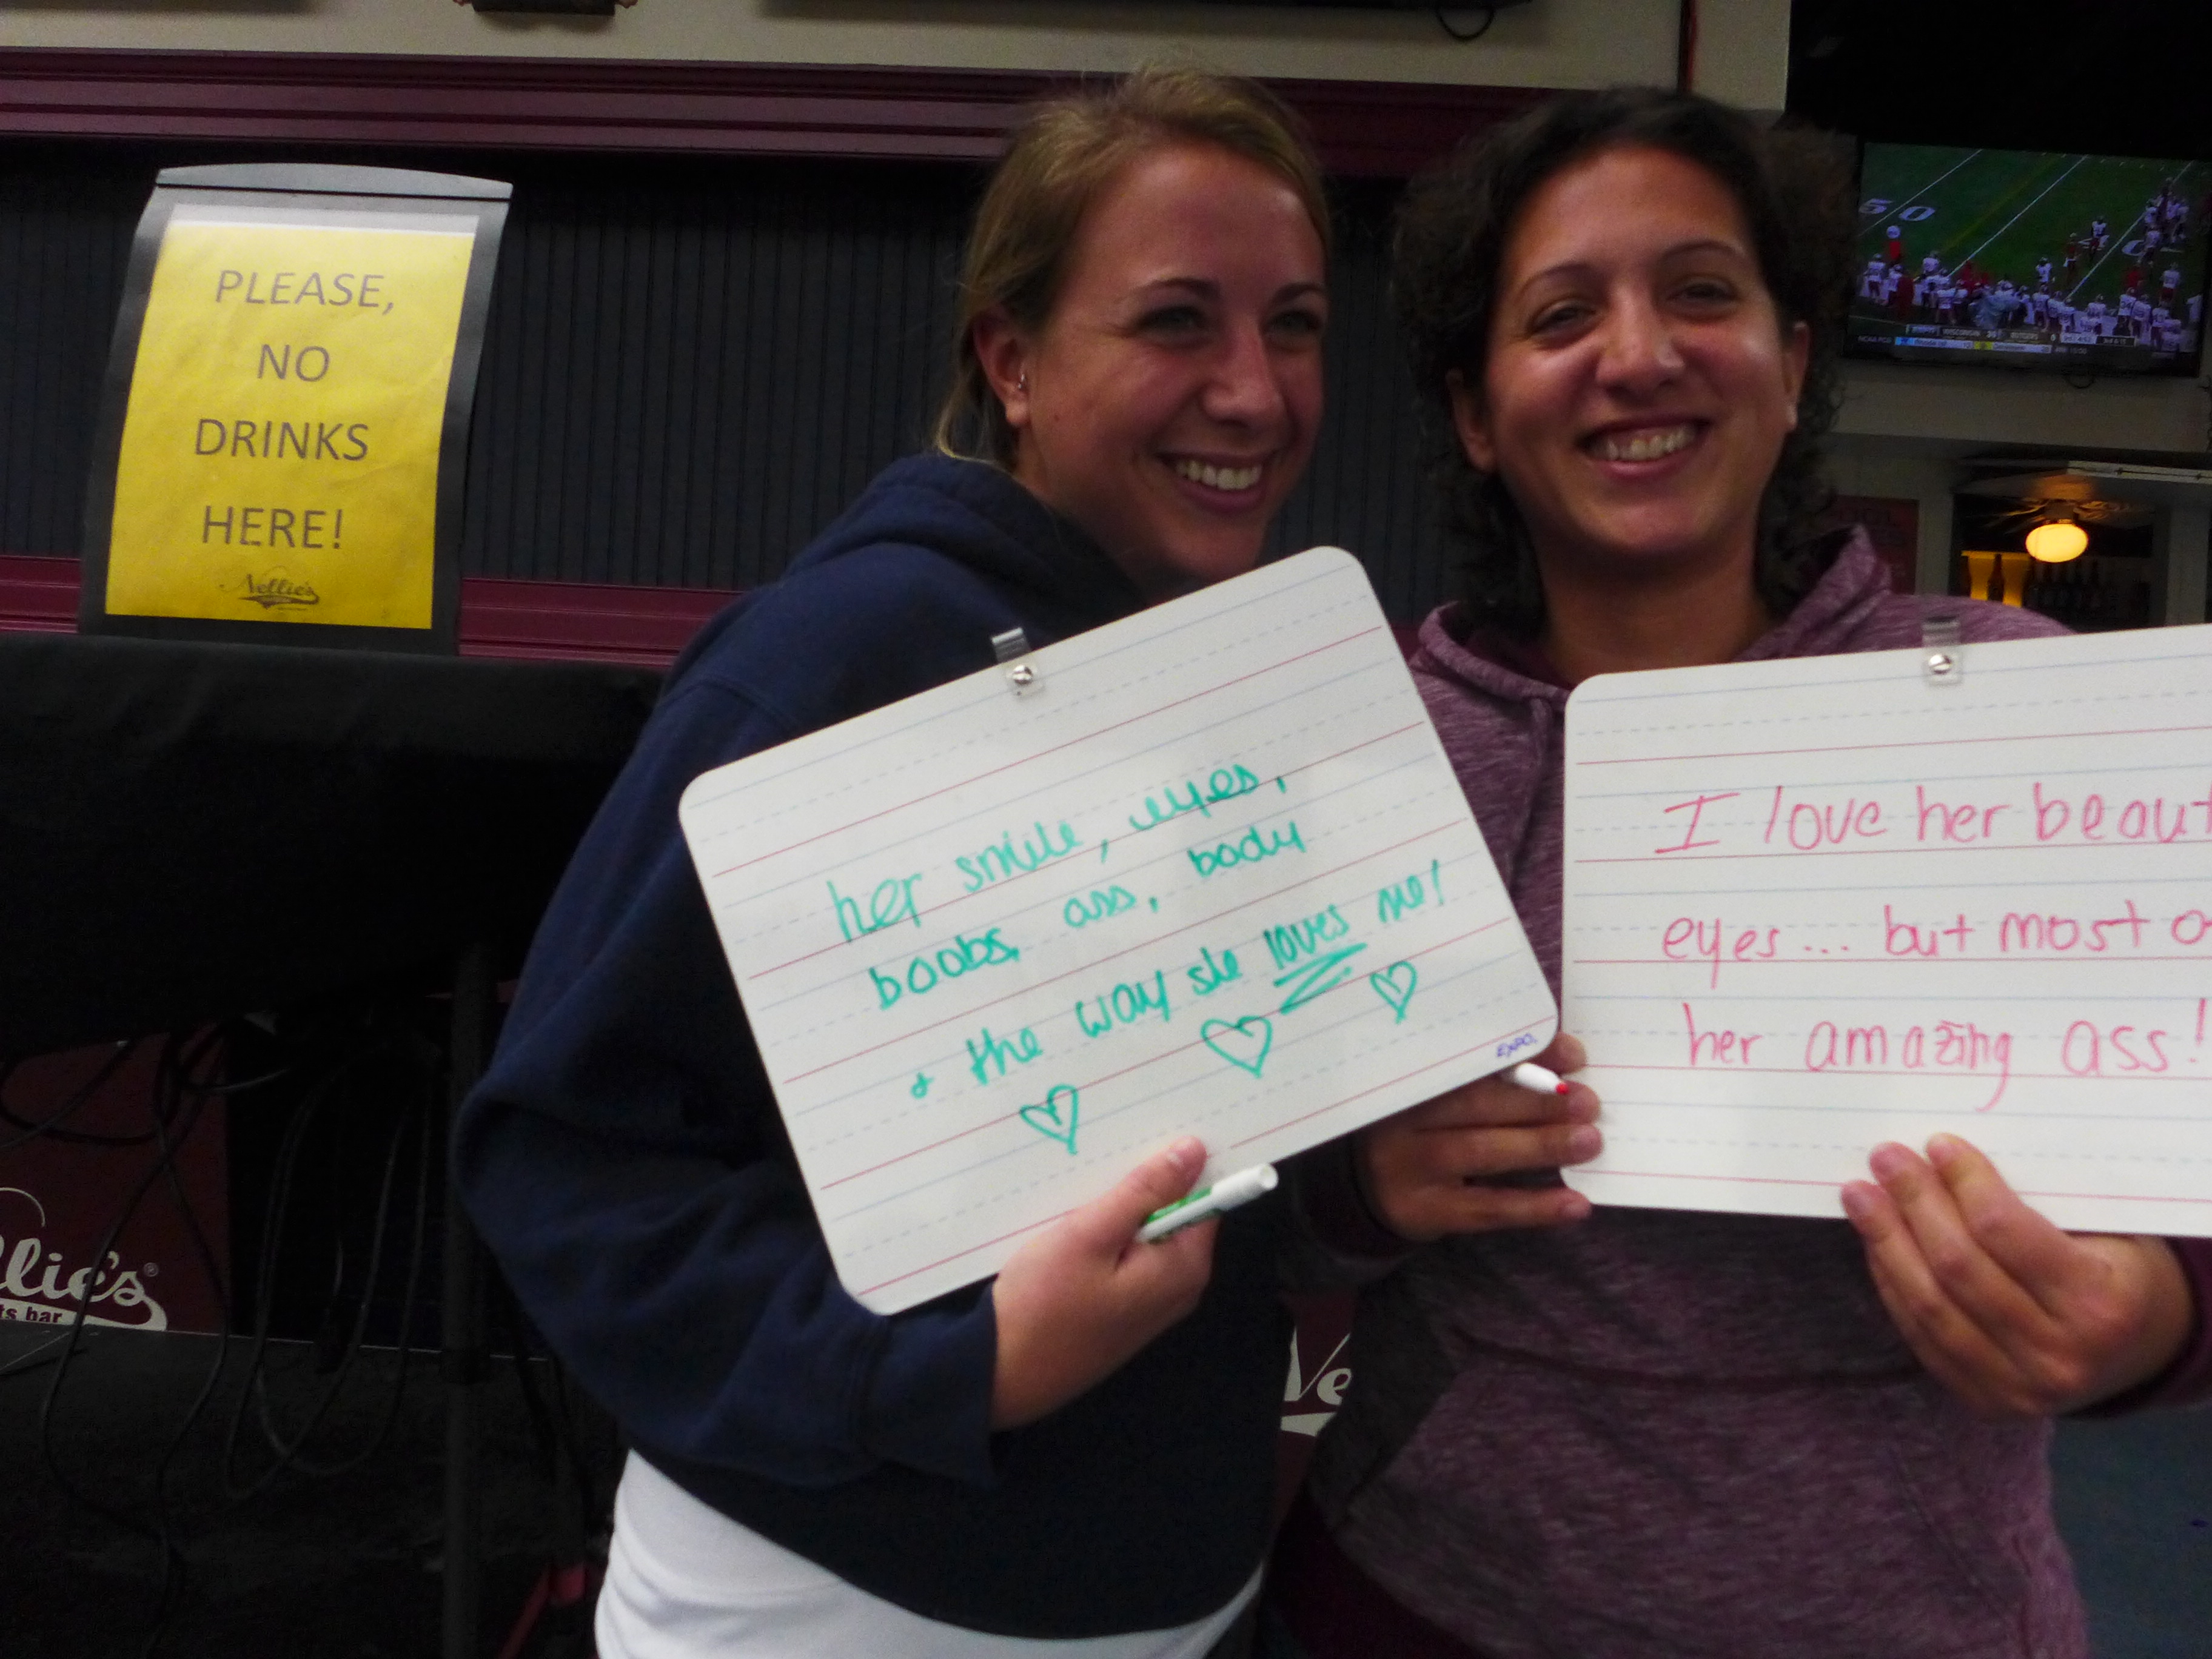 PLEASE,
NO
DRINKS
HERE!
Nellie's
50
WISCONSIN
RUTGERS
her smile, eyes,
boobs, ass, body
+ the way she loves me!
EXPO.
I love her beaut
eyes... but most o
her amazing ass!
llie's®
ts bar
Ne